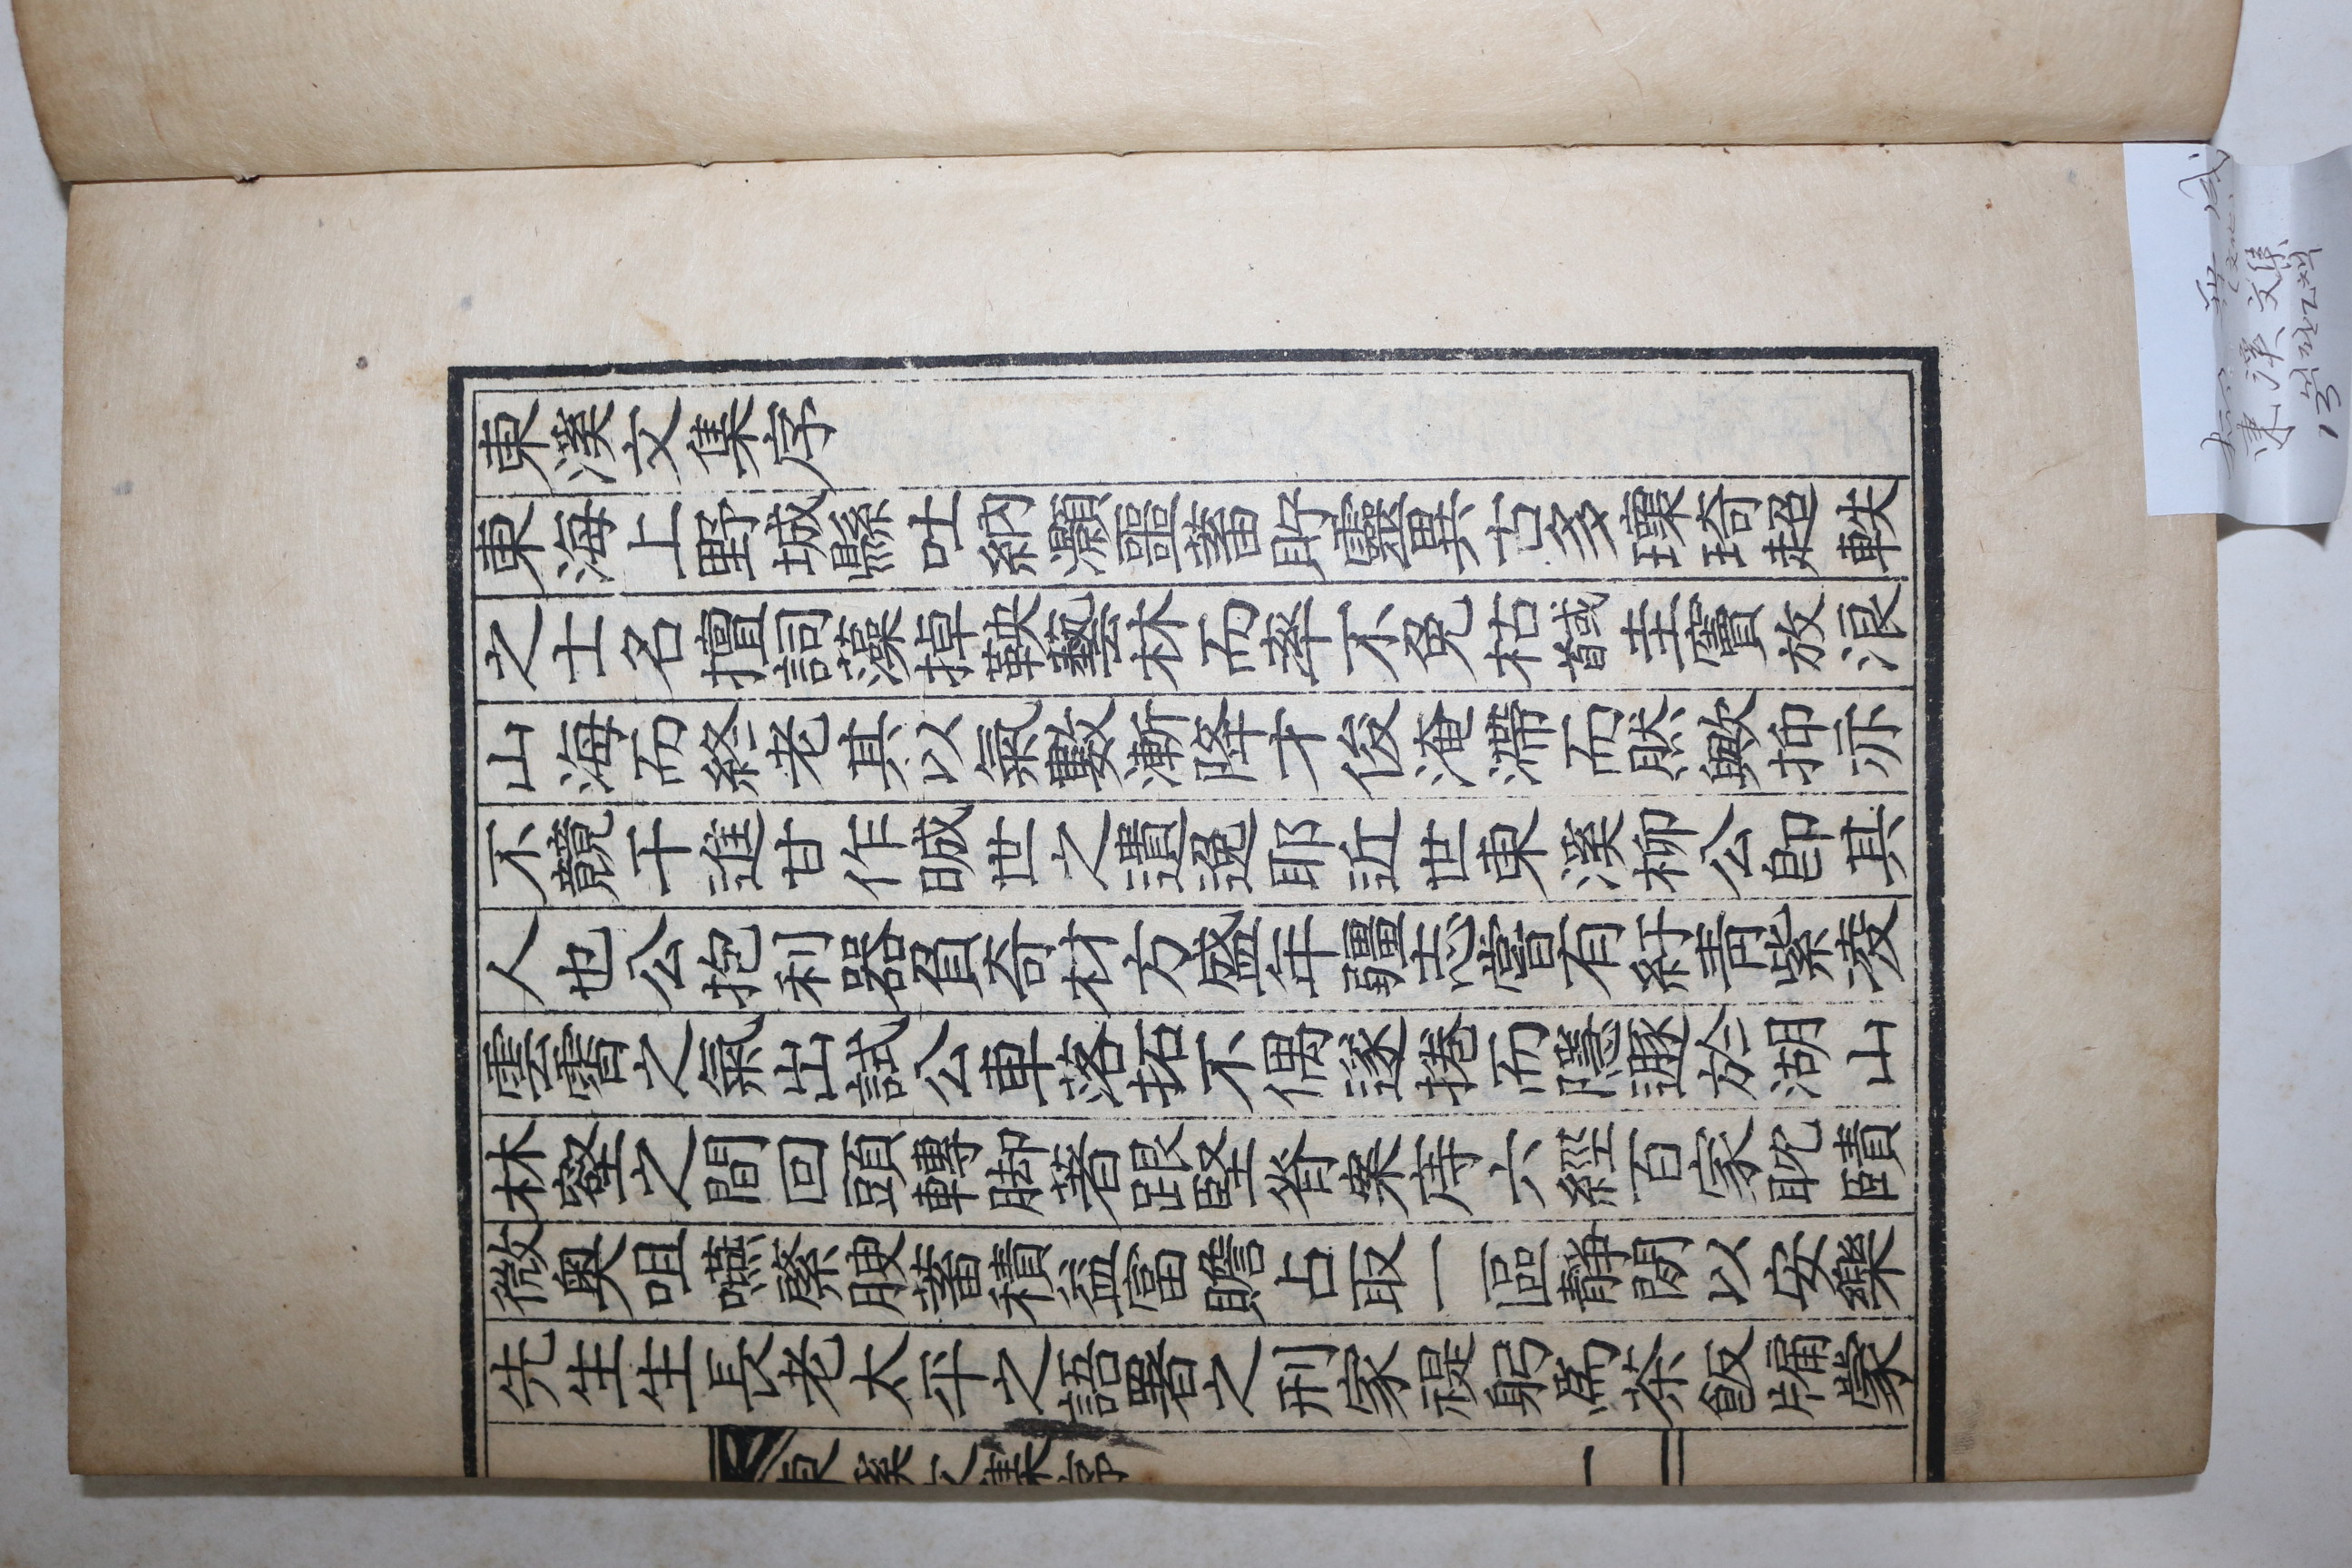 東溪文集序
東海上野城縣吐納灝噩蓄貯靈異古多瓌琦超軼
之士名擅詞藻掉鞅藝林而率不免枯馘圭竇放浪
山海而終老其以氣數漸降才俊淹滯而然歟抑亦
不競干進甘作晠世之遺逸耶近世東溪柳公卽其
人也公抱利器負奇材方盛年彊志嘗有紆靑紫凌
雲霄之氣出試公車落拓不偶遂捲而隱遯於湖山
林壑之間回頭轉脚著跟堅脊案庤六經百家耽賾
微奧咀嚥綮腴蓄積益富贍占取一區靜閒以安樂
先生生長老太平之語署之刑家禔躬爲茶飯牗蒙
東溪文集序
一
東溪文集